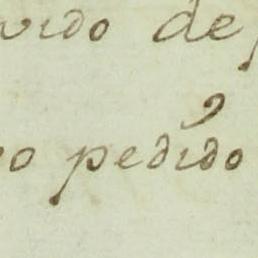 vido de
o pedido